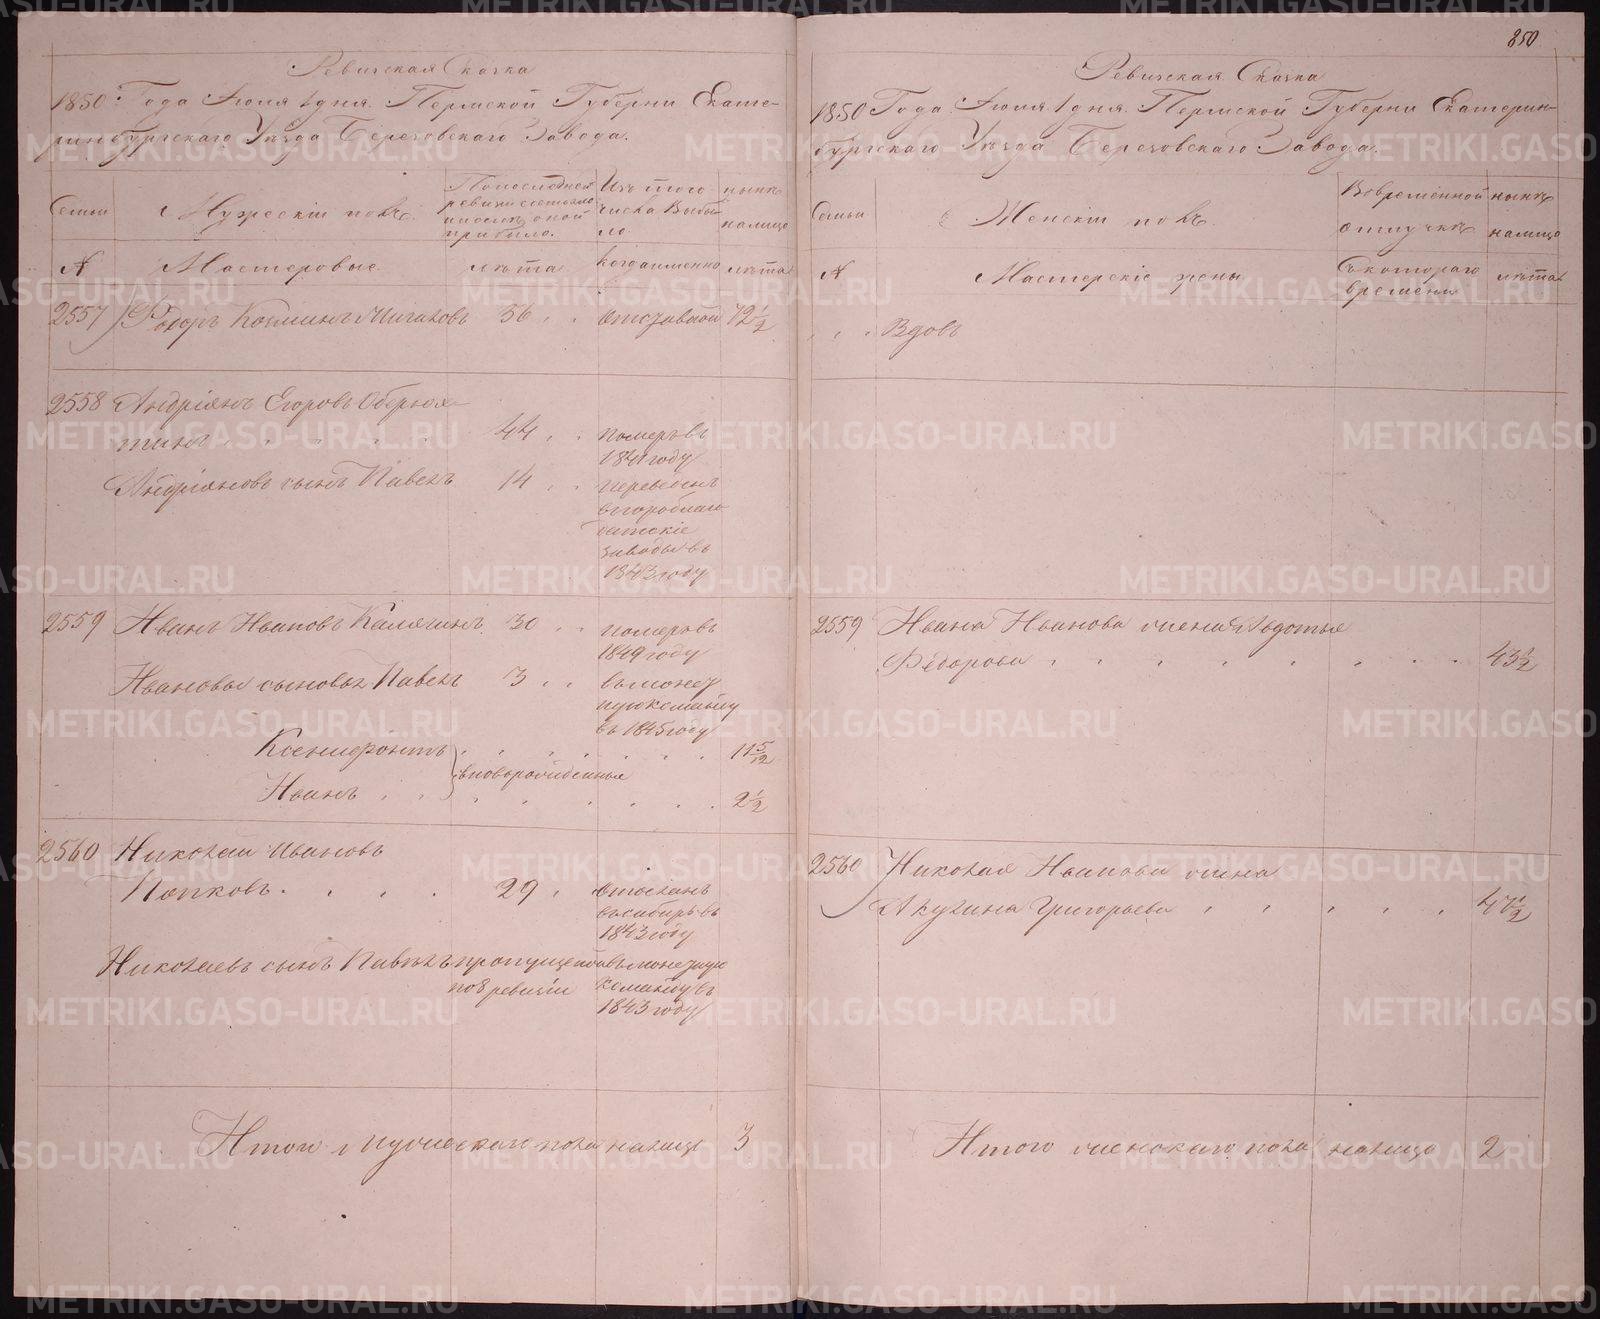 850
Ревизская Сказка
1850 Года Июня 1 дня. Пермской Губерни Екате-
ринбургскаго Уѣзда Березовскаго Завода.
Семьи
Мужескій полъ.
По последней
ревизіи состояло
и после оной
прибыло.
Изъ того
числа выбы
ло
нынѣ
налицо
№
Мастеровые
лѣта
Когда именно
лѣта
2557 Федоръ Козминъ 56 отставной 72 1/2
2558 Андріянъ Егоровъ Оберюх-
тинъ 44 померъ въ
1841 году
Андріяновъ сынъ Павелъ 14 переведенъ
въ гороблаго
датскіе
заводы въ
1843 году
2559 Иванъ Ивановъ Калягинъ 30 померъ въ
1849 году
Ивановы сыновья Павелъ 3 въ монет
ную команду
въ 1845 году
Ксенофонтъ 11 5/12
вновьрожденные
Иванъ 2 1/2
2560 Николай Ивановъ
Попковъ 29 отосланъ
въ сибирь въ
1843 году
Николаевъ сынъ Павелъ пропущенной въ монетную
по 8 ревизіи команду въ
1843 году
Итого мужескаго пола налицо 3
Ревизская Сказка
1850 Года Июня 1 дня. Пермской Губерни Екатерин-
бургскаго Уѣзда Березовскаго Завода.
Семьи
Женскій полъ.
Во временной
отлучкѣ
нынѣ
налицо
№
Мастерскіе жены
Съ котораго
времени
лѣта
Вдовъ
2559 Ивана Иванова жена Авдотья
Федорова 43 1/2
2560 Николая Иванова жена
Акулина Григорьева 47 1/2
Итого женскаго пола налицо 2
METRIKI.GASO-URAL.RU